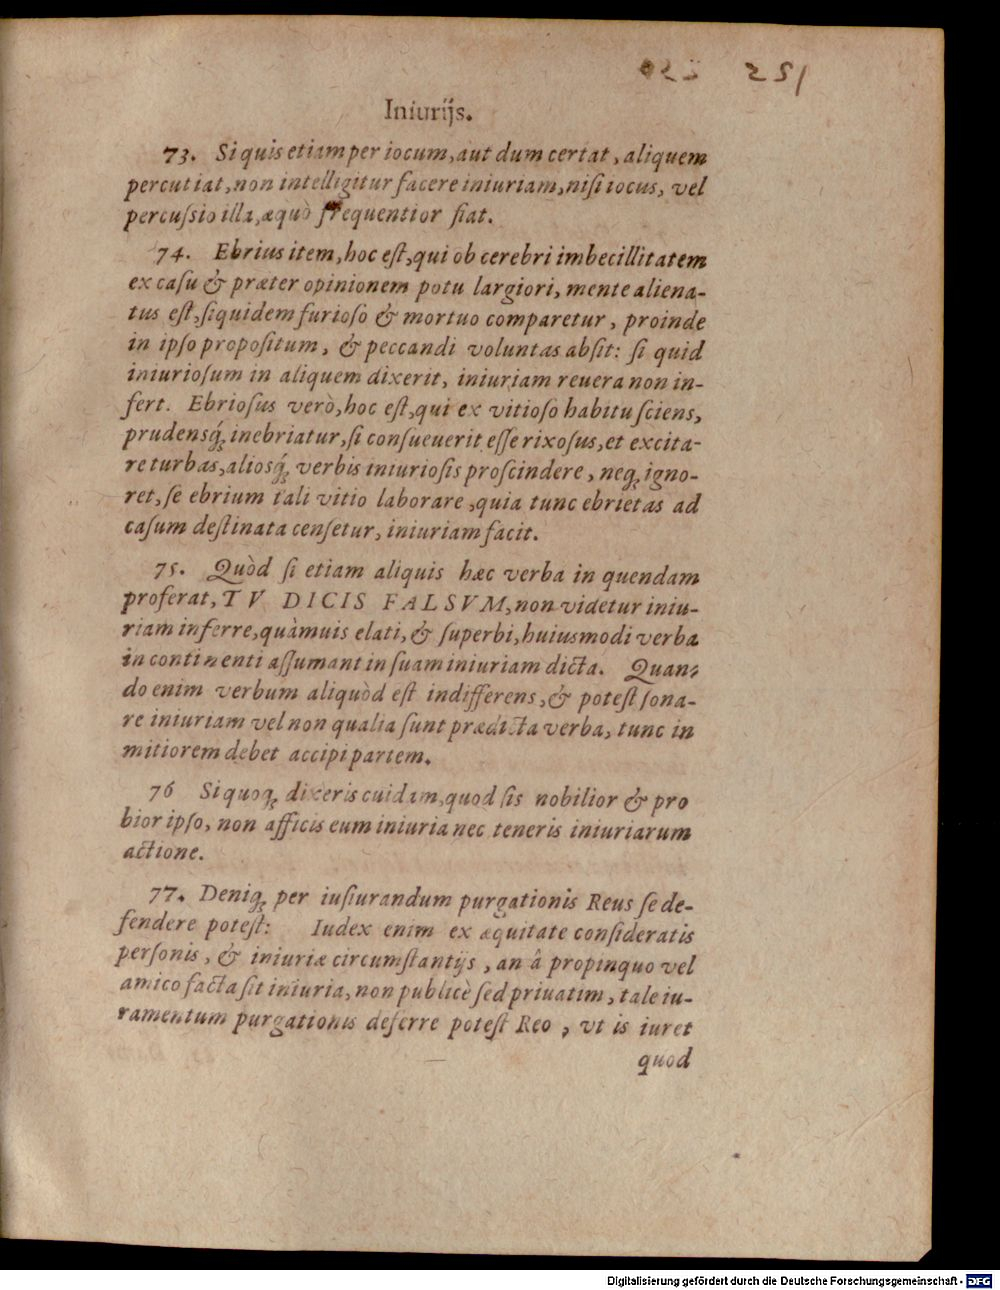 Iniurijs.
73. Si quis etiam per iocum, aut dum certat, aliquem
percutiat, non intelligitur facere iniuriam, niſi iocus, vel
percuſsio illa, æquò frequentior fiat.
74. Ebrius item, hoc eſt, qui ob cerebri imbecillitatem
ex caſu & præter opinionem potu largiori, mente aliena-
tus eſt, ſiquidem furioſo & mortuo comparetur, proinde
in ipſo propoſitum, & peccandi voluntas abſit: ſi quid
iniurioſum in aliquem dixerit, iniuriam reuera non in-
fert. Ebrioſus verò, hoc eſt, qui ex vitioſo habitu ſciens,
prudensq́; inebriatur, ſi conſueuerit eſſe rixoſus, et excita-
re turbas, aliosq́; verbis iniurioſis proſcindere, neq; igno-
ret, ſe ebrium tali vitio laborare, quia tunc ebrietas ad
caſum deſtinata cenſetur, iniuriam facit.
75. Quòd ſi etiam aliquis hæc verba in quendam
proferat, TV DICIS FALSVM, non videtur iniu-
riam inferre, quàmuis elati, & ſuperbi, huiusmodi verba
in continenti aſſumant in ſuam iniuriam dicta. Quan-
do enim verbum aliquòd eſt indifferens, & poteſt ſona-
re iniuriam vel non qualia ſunt prædicta verba, tunc in
mitiorem debet accipi partem.
76 Si quoq; dixeris cuidam, quod ſis nobilior & pro
bior ipſo, non afficis eum iniuria nec teneris iniuriarum
actione.
77. Deniq; per iuſiurandum purgationis Reus ſe de-
fendere poteſt: Iudex enim ex æquitate conſideratis
perſonis, & iniuriæ circumſtantijs, an â propinquo vel
amico facta ſit iniuria, non publicè ſed priuatim, tale iu-
ramentum purgationis deferre poteſt Reo, vt is iuret
quod
Digitalisierung gefördert durch die Deutsche Forschungsgemeinschaft - DFG